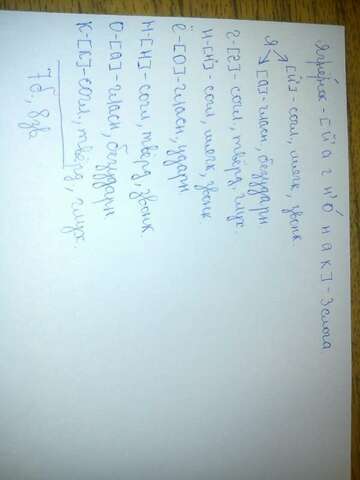 Ягнёнок - [й' а г н' о́ н а к] - 3 слога
Я [й'] - согл, мягк, звонк
[а] - гласн, безударн
г - [г] - согл, твёрд, глух.
н - [н'] - согл, мягк, звонк
ё - [о] - гласн, ударн
н - [н] - согл, твёрд, звонк.
о - [а] - гласн, безударн
к - [а] - согл, твёрд, глух.
7б, 8зв